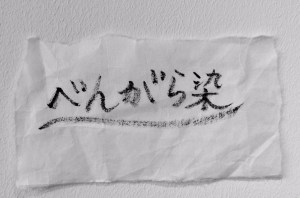 べんがら染